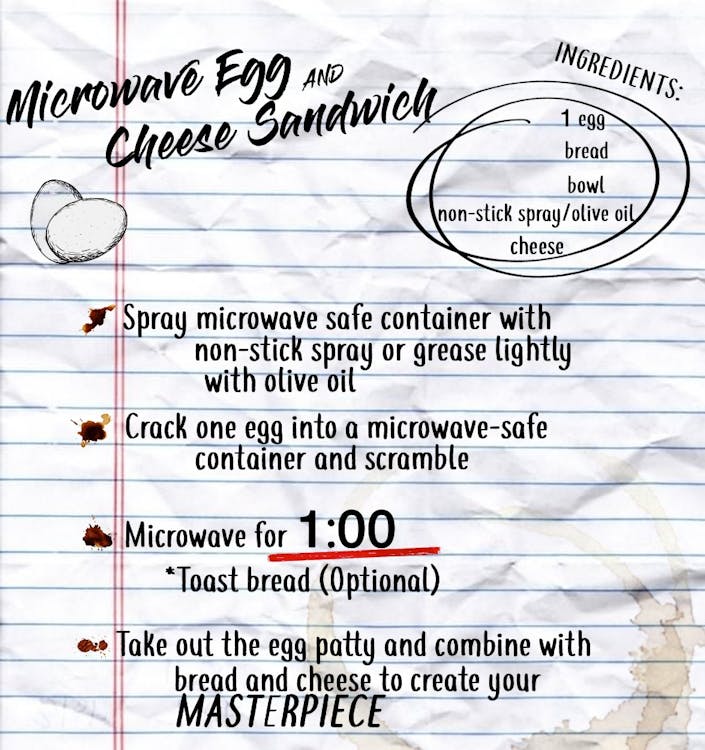 Microwave Egg AND
Cheese Sandwich
INGREDIENTS:
1 egg
bread
bowl
non-stick spray/olive oil
cheese
Spray microwave safe container with
non-stick spray or grease lightly
with olive oil
Crack one egg into a microwave-safe
container and scramble
Microwave for 1:00
*Toast bread (Optional)
Take out the egg patty and combine with
bread and cheese to create your
MASTERPIECE